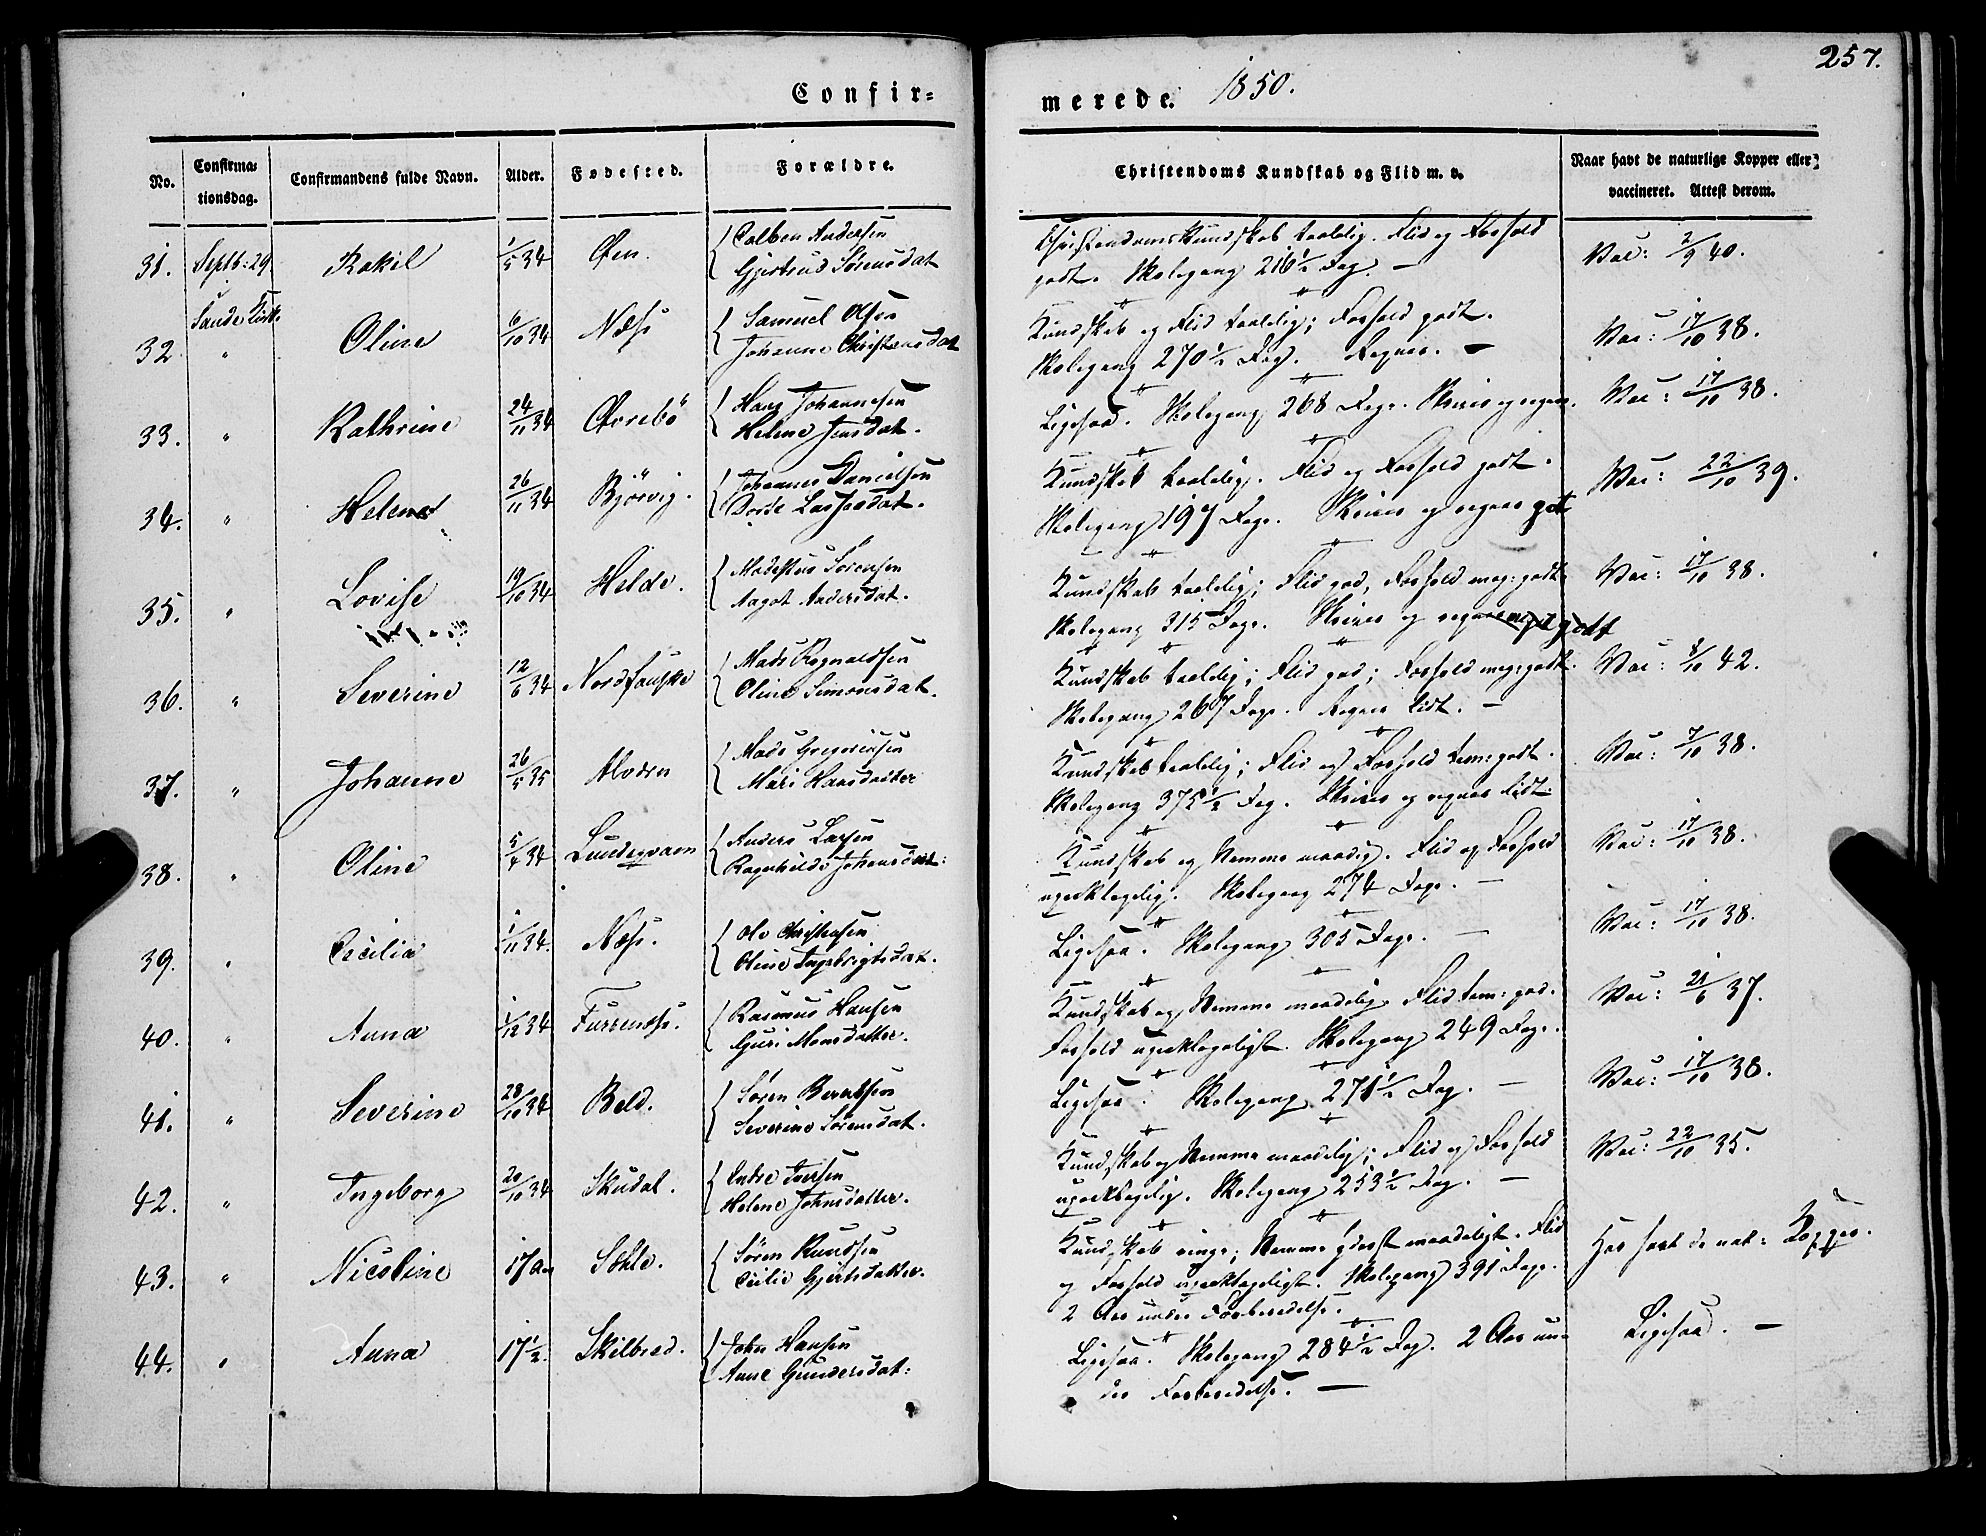 257.
Confir-
merede. 1850.
No.
Confirma-
tionsdag.
Confirmandens fulde Navn.
Alder.
Fødested.
Forældre.
Christendoms Kundskab og Flid m. v.
Naar havt de naturlige Kopper eller
vaccineret. Attest derom.
31. Septb: 29. Rakel 1/5 34 Øen. Colben Andersen
Gjertrud Sørensdat
Christendomskundskab taalelig. Flid og Forhold
godt. Skolegang 216½ Dag. —
Vac: 2/9 40.
Sande Kirk.
32 " Oline 6/10 34 Næs Samuel Olsen
Johanne Christensdat
Kundskab og Flid taalelig; Forhold godt.
Skolegang 270½ Dag. Regner. —
Vac: 17/10 38.
33. " Kathrine 24/11 34 Øvrebö Hans Johannesen
Helene Jensdat.
Ligesaa. Skolegang 268 Dage. Skriver og regner.
Vac: 17/10 38.
34. " Helene 26/11 34 Bjørvig. Johannes Danielsen
Dorte Lassesdat.
Kundskab taalelig. Flid og Forhold godt.
Skolegang 197 Dage. Skriver og regner godt
Vac: 22/10 39.
35. " Lovise 19/10 34 Helde. Modestus Sørensen
Aagot Andersdat.
Kundskab taalelig; Flid god, Forhold meg: godt.
Skolegang 315 Dage. Skriver og regner meget godt
Vac: 17/10 38.
36. " Severine 12/6 34 Nordfauske Mads Rognaldsen
Oline Simonsdat.
Kundskab taalelig; Flid god; Forhold meg: godt.
Skolegang 267 Dage. Regner lidt. —
Vac: 8/10 42.
37. " Johanne 26/5 35 Alværn Mads Gregoriusen
Mari Hansdatter
Kundskab taalelig; Flid og Forhold tem: godt.
Skolegang 375½ Dag. Skriver og regner lidt.
Vac: 7/10 38.
38. " Oline 5/4 34 Lundegvaen Anders Larsen
Ragnhilde Johansdat:
Kundskab og Nemme maadelig. Flid og Forhold
upaaklagelig. Skolegang 274 Dage. —
Vac: 17/10 38.
39. " Cecilia 1/11 34. Næs. Ole Christensen
Oline Ingebrigtsdat.
Ligesaa. Skolegang 305 Dage. —
Vac: 17/10 38.
40. " Anna 1/12 34 Furrenæs. Rasmus Hansen
Guri Monsdatter.
Kundskab og Nemme maadelig. Flid tem: god.
Forhold upaaklageligt. Skolegang 249 Dage.
Vac: 21/6 37.
41. " Severine 28/10 34 Beld. Søren Berntsen
Severine Sørensdat.
Ligesaa. Skolegang 271½ Dag. —
Vac: 17/10 38.
42. " Ingeborg 20/10 34 Skudal. Endre Iversen
Helene Johnsdatter.
Kundskab og Nemme maadelig; Flid og Forhold
upaaklagelig. Skolegang 253½ Dag. —
Vac: 22/10 35.
43. " Nicoline 17 Aar Sæhle. Sören Knudsen
Cecilie Gjertsdatter.
Kundskab ringe; Nemme yderst maadeligt. Flid
og Forhold upaaklageligt. Skolegang 391 Dage.
2 Aar under Forberedelse.
Har havt de nat: Kopper.
44. " Anna 17½. Skilbred. John Hansen
Anne Gundersdat:
Ligesaa. Skolegang 284½ Dag. 2 Aar un-
der Forberedelse. —
Ligesaa. —